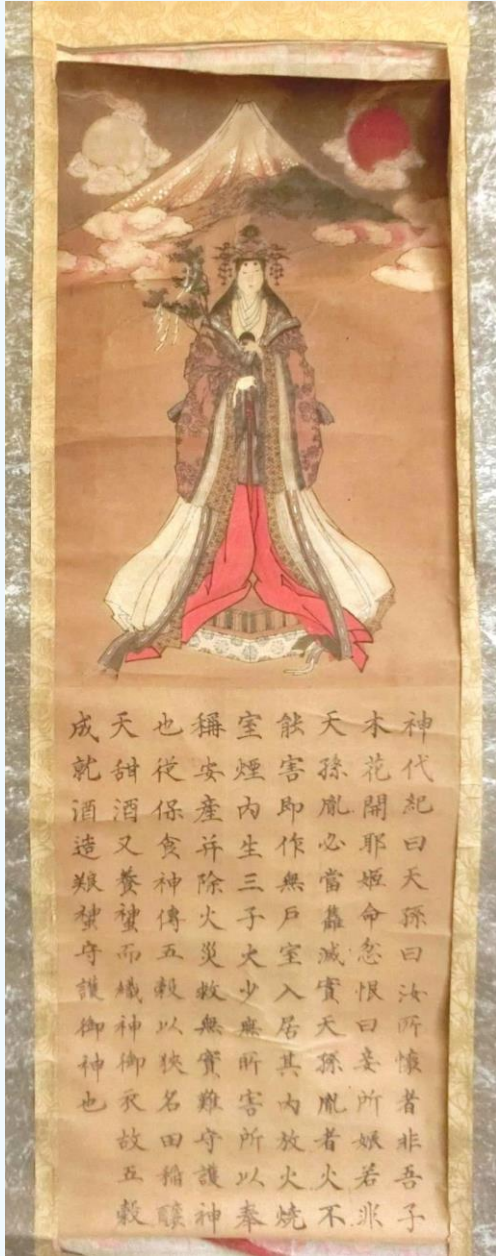 神代紀曰天孫曰汝所懐者非吾子
木花開耶姫命忿恨曰妾所娠若非
天孫胤必當𤏙滅實天孫胤者火不
能害即作無戸室入居其内放火焼
室煙内生三子火少無所害所以奉
稱安産并除火災救無實難守護神
也従保食神傳五穀以狹名田稲釀
天甜酒又養蚕而織神御衣故五穀
成就酒造䖢蚕守護御神也